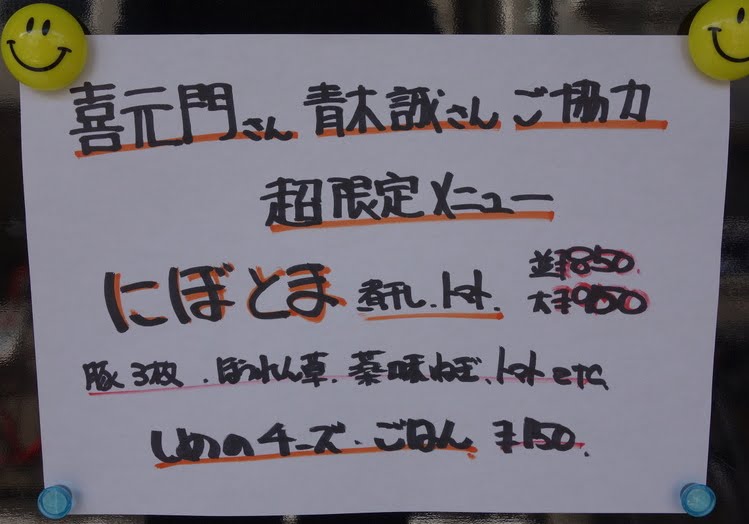 喜元門さん 青木誠さん ご協力
超限定メニュー
にぼとま 煮干し、トマト、 並¥850.
大¥950
豚3枚、ほうれん草、薬味ねぎ、トマト etc
しめのチーズ、ごはん ¥150.